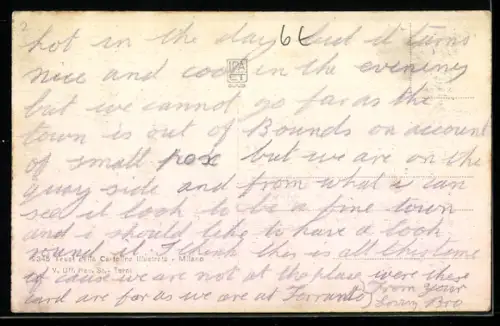 2
hot in the day but it turns
6t
nice and cool in the evening
but we cannot go far as the
town is out of Bounds on account
of small pox but we are on the
quay side and from what i can
see it look to be a fine town
and i should like to have a look
round it. I think this is all this time
Cartoline Illustrate - Milano
V. Uff. Rev. St. - Terni
of cause we are not at the place were these
card are far as we are at Terranto
From your
loving Bro